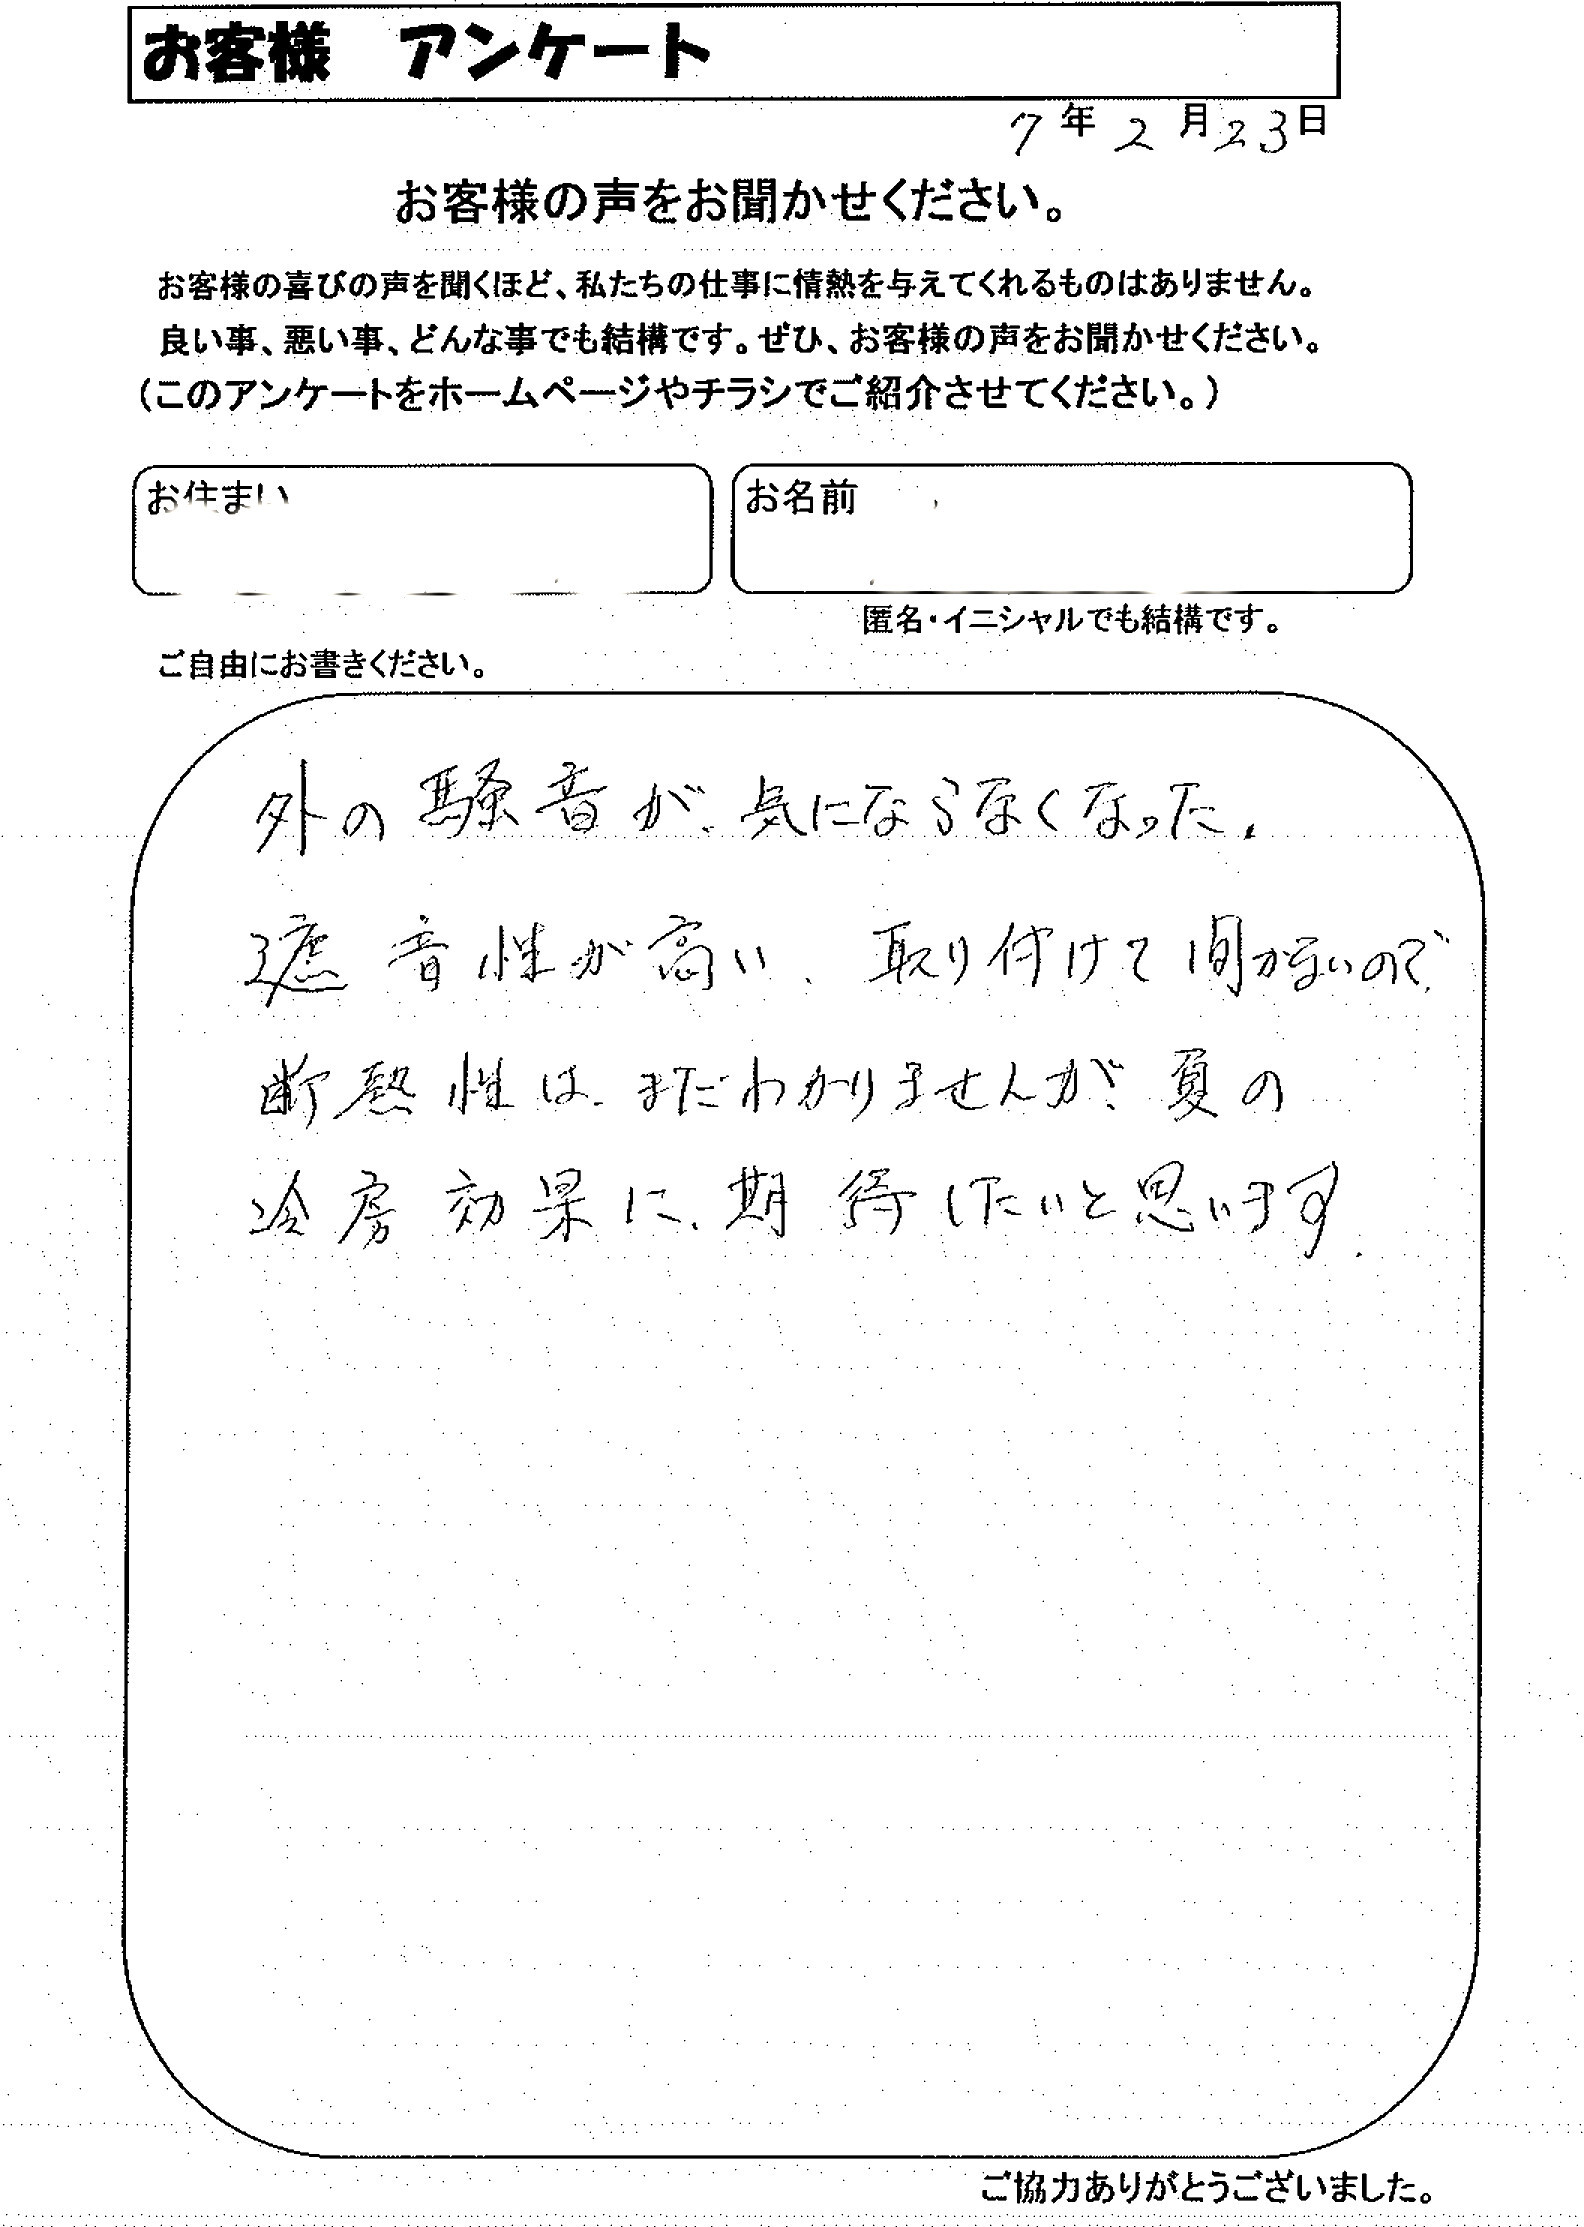 お客様 アンケート
7年2月23日
お客様の声をお聞かせください。
お客様の喜びの声を聞くほど、私たちの仕事に情熱を与えてくれるものはありません。
良い事、悪い事、どんな事でも結構です。ぜひ、お客様の声をお聞かせください。
(このアンケートをホームページやチラシでご紹介させてください。)
お住まい
お名前
匿名・イニシャルでも結構です。
ご自由にお書きください。
外の騒音が、気にならなくなった。
遮音性が高い、取り付けて間がないので、
断熱性は、まだわかりませんが、夏の
冷房効果に、期待したいと思います。
ご協力ありがとうございました。